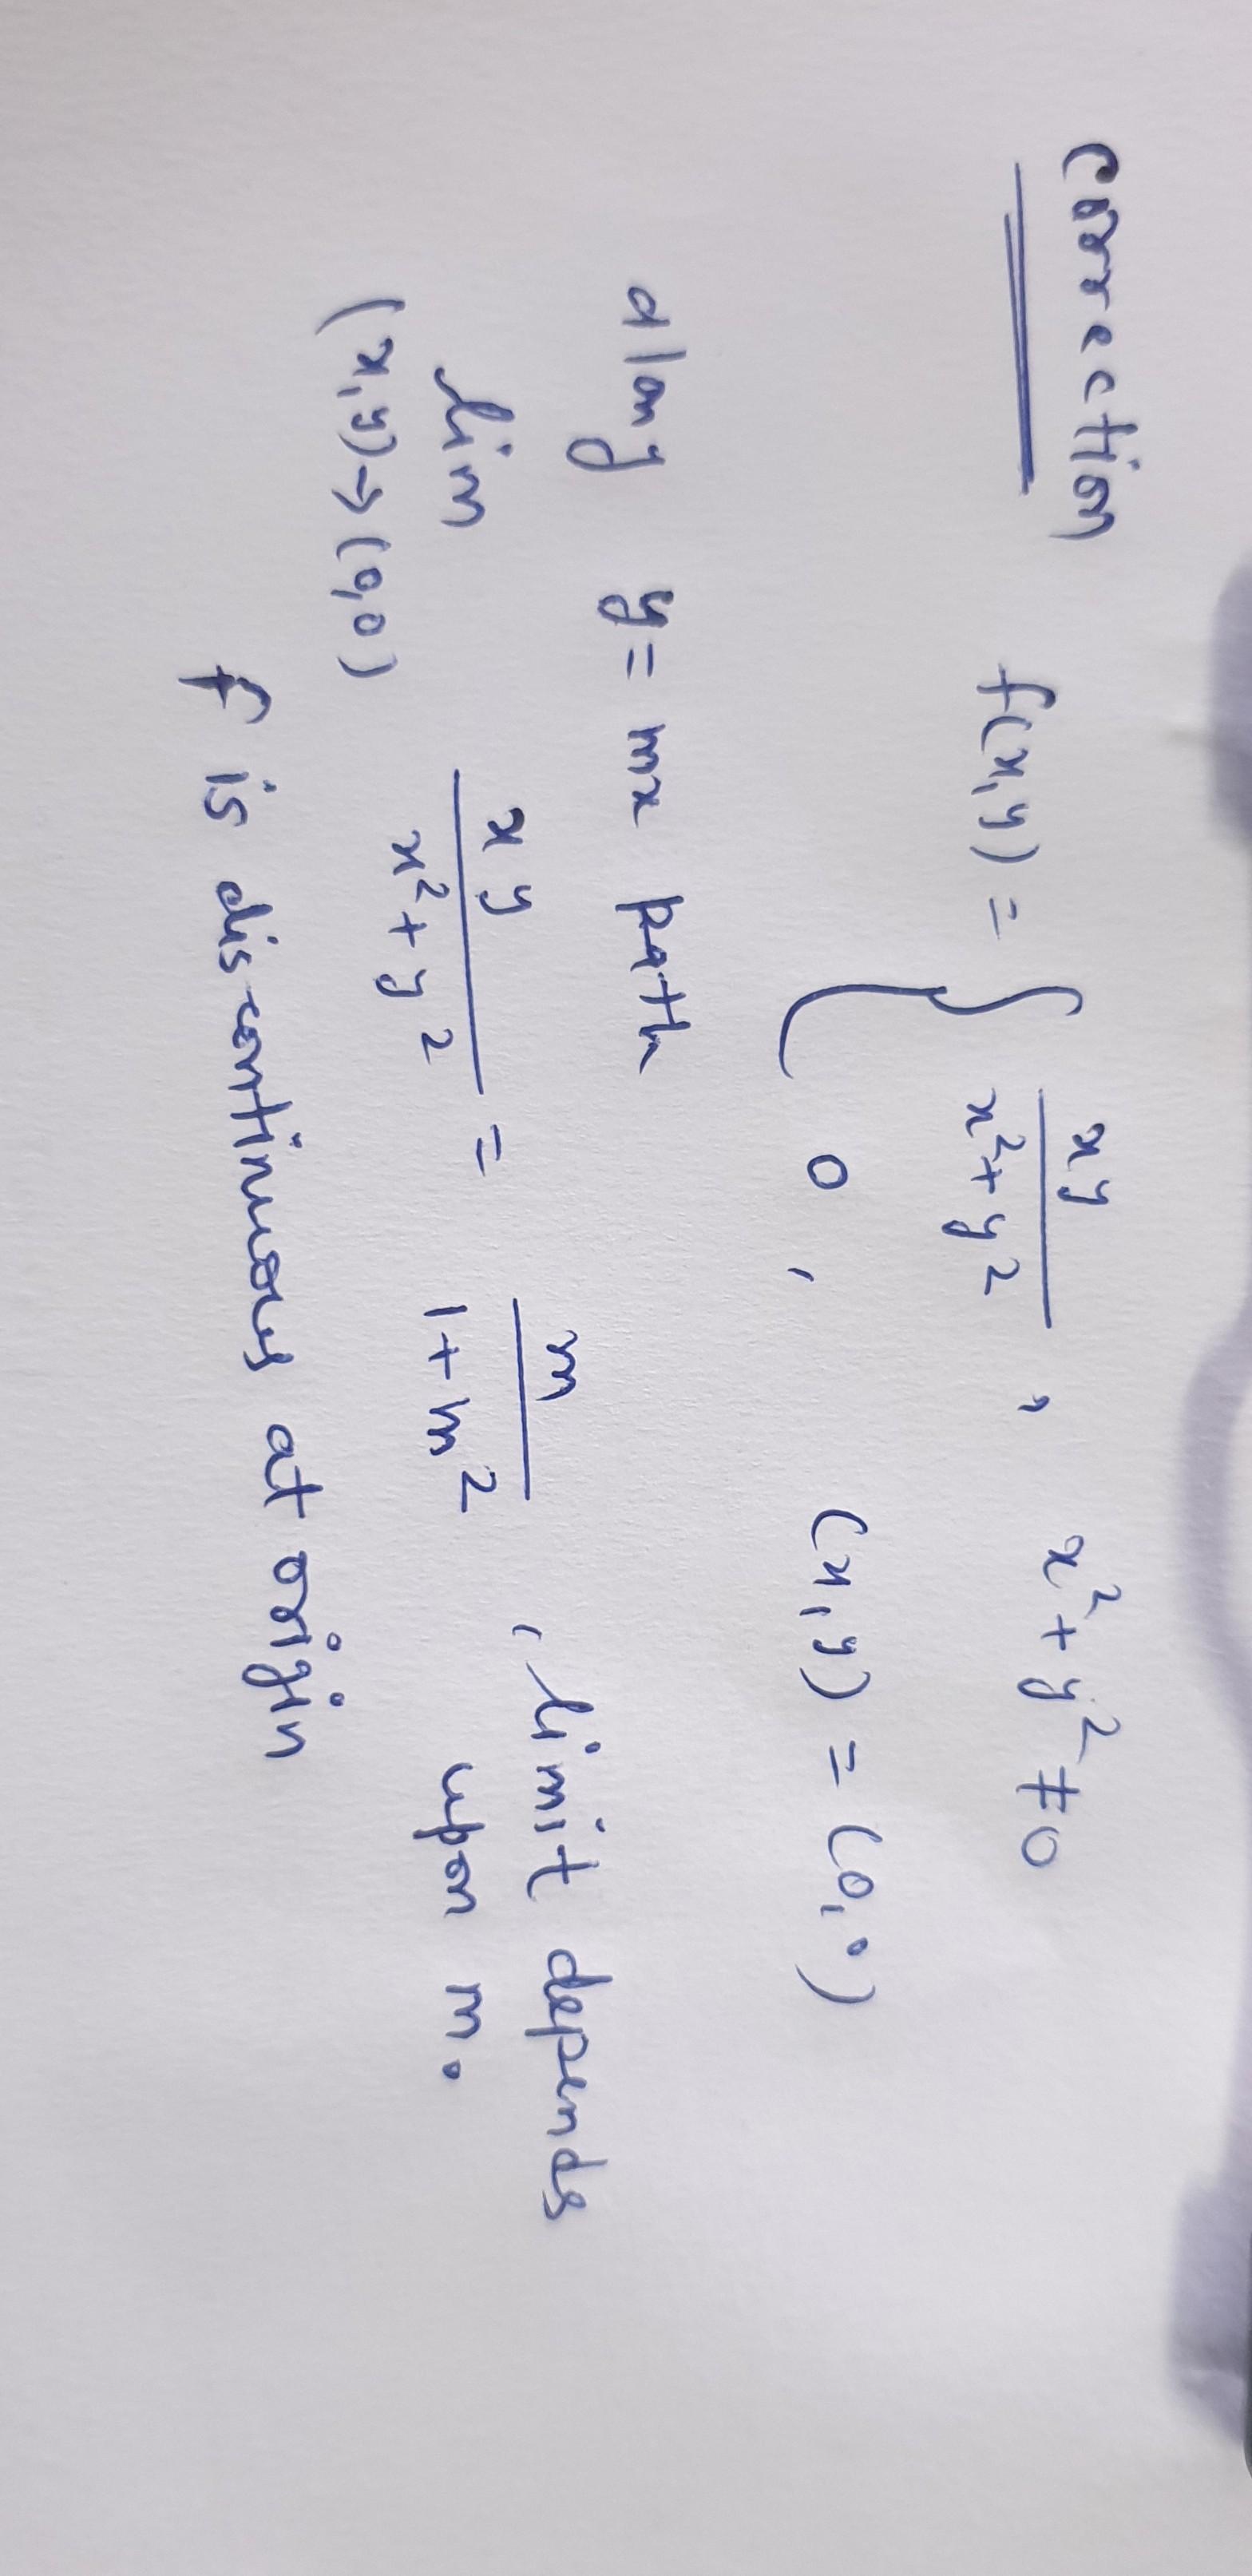 Correction
f(x,y) = { xy / x²+y² , x²+y² ≠ 0
0 , (x,y) = (0,0)
along y = mx path
lim (x,y)→(0,0) xy / x²+y² = m / 1+m² , limit depends
upon m.
f is discontinuous at origin